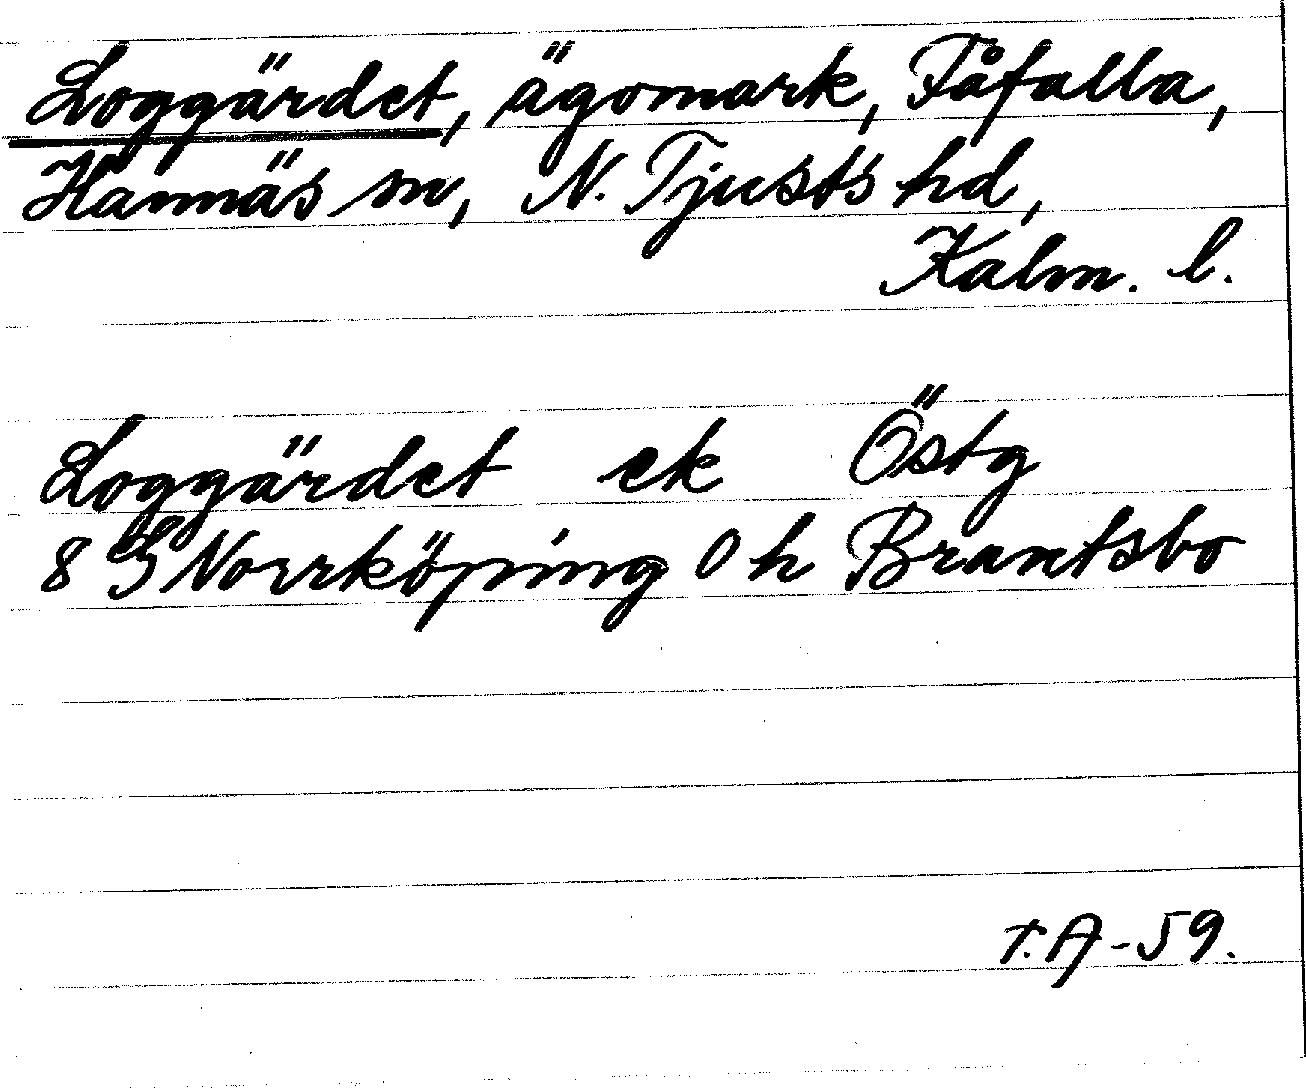 Loggärdet, ägomark, Fåfalla,
Hannäs sn, N. Tjusts hd,
Kalm. l.
Loggärdet ek Östg
8 G Norrköping 0 h Brantsbo
T.A-59.